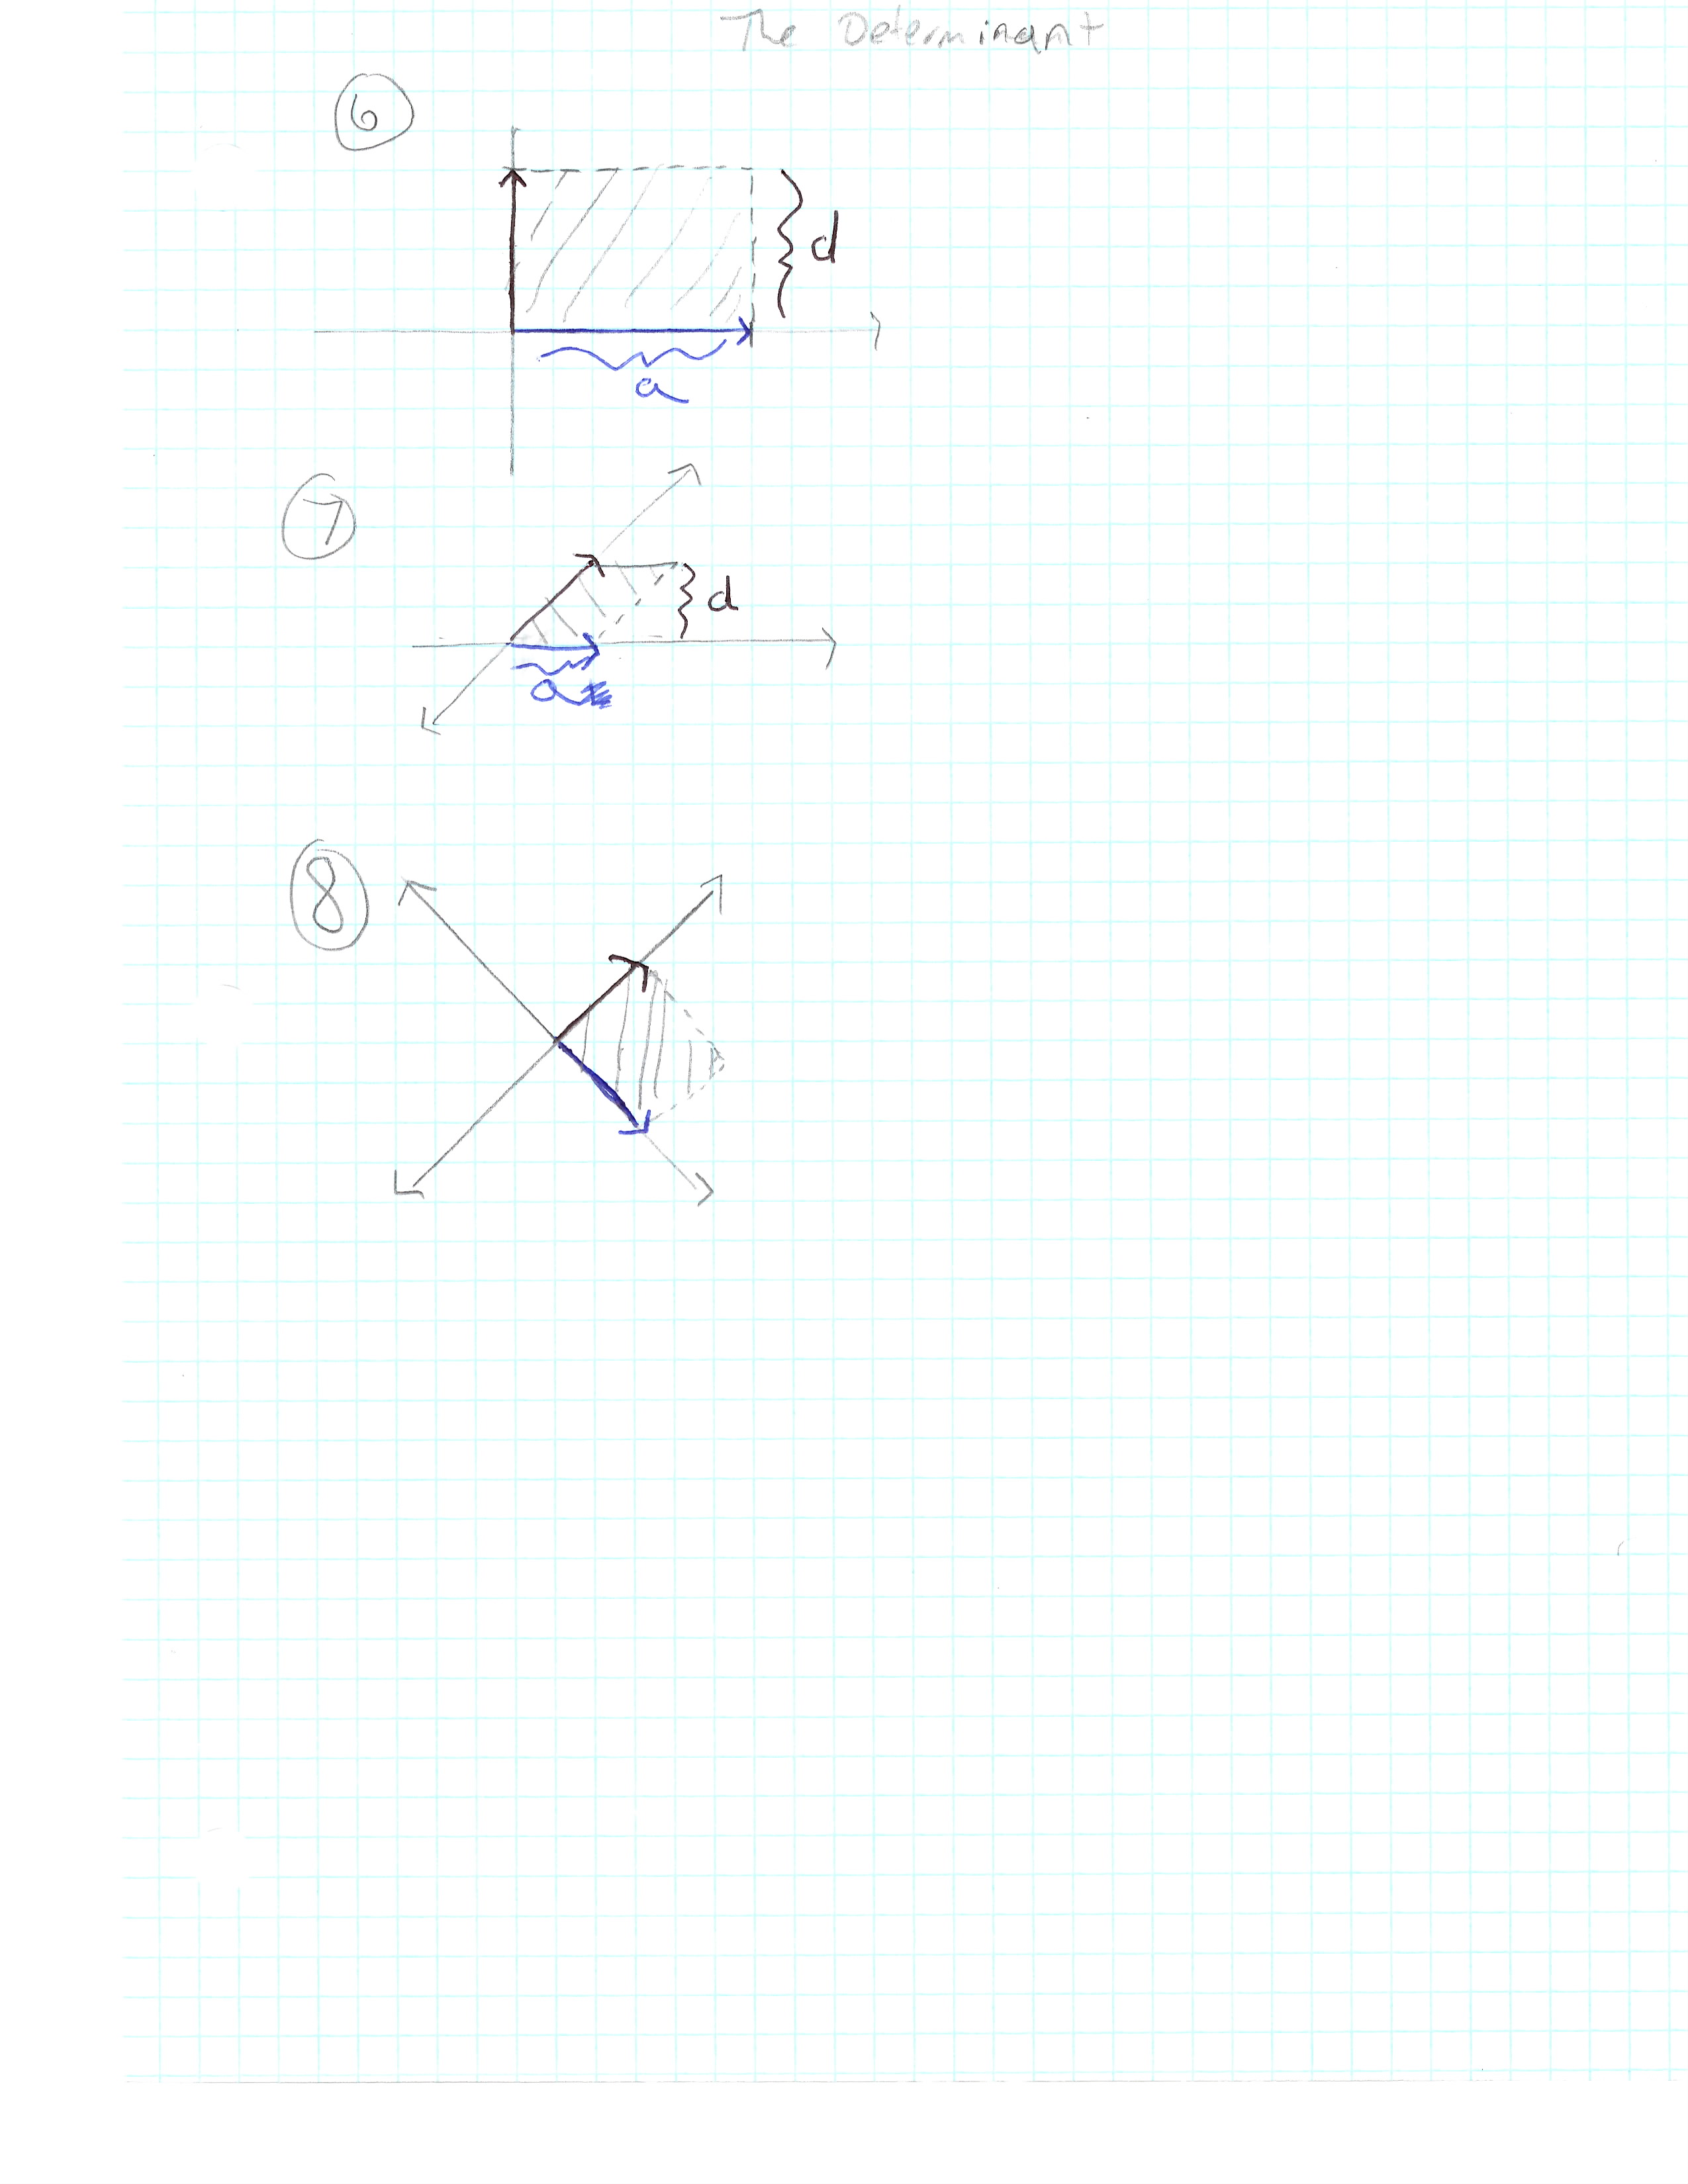 The Determinant
6
d
a
7
d
a
8